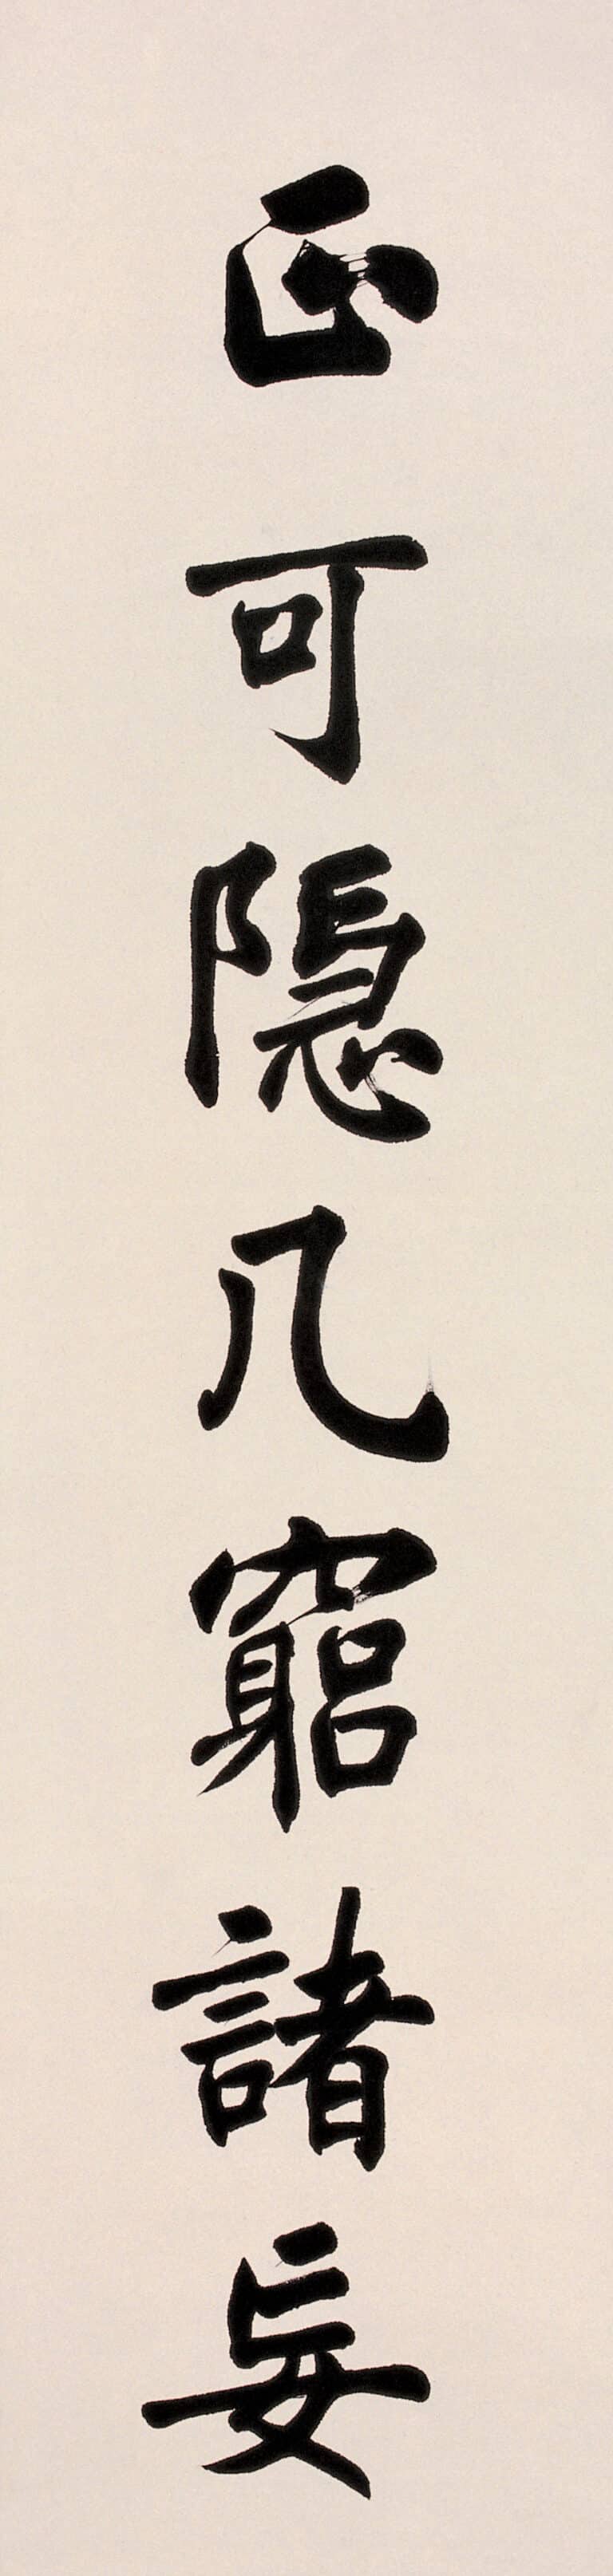 正可隱几窮諸妄